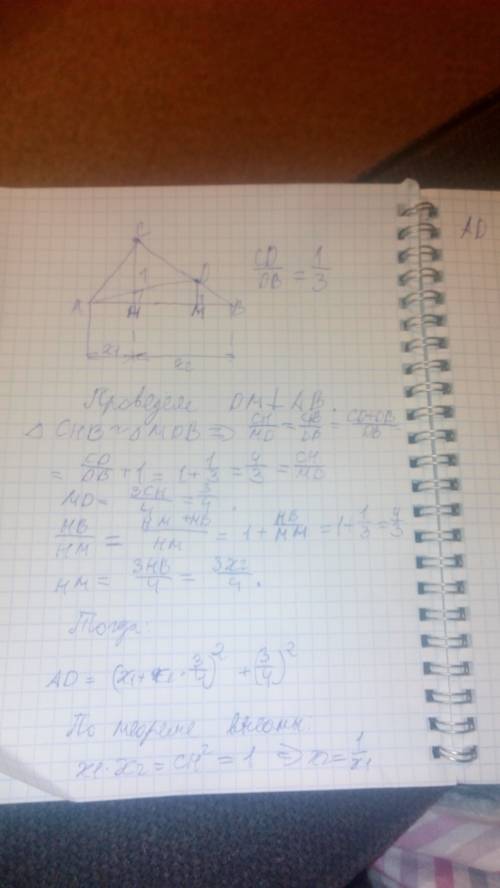 AD
C
1
D
A
H
M
B
x1
x2
CD/DB = 1/3
Проведем DM ⊥ AB.
△ CHB ~ △MDB => CH/MD = CB/DB = CD+DB/DB =
= CD/DB + 1 = 1 + 1/3 = 4/3 = CH/MD
MD = 3CH/4 = 3/4.
HB/HM = HM+MB/HM = 1 + MB/HM = 1+1/3 = 4/3
HM = 3HB/4 = 3x2/4.
Тогда:
AD = (x1+x2·3/4)² + (3/4)²
По теореме
x1·x2 = CH² = 1 => x2 = 1/x1